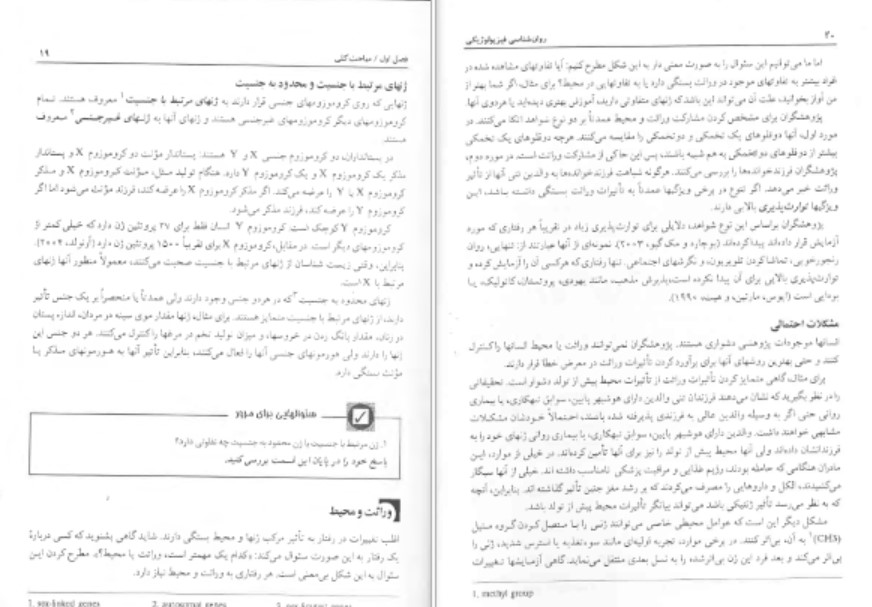 فصل اول / مباحث کلی ۱۹
ژنهای مرتبط با جنسیت و محدود به جنسیت
ژنهایی که روی کروموزومهای جنسی قرار دارند به ژنهای مرتبط با جنسیت۱ معروف هستند. تمام
کروموزومهای دیگر کروموزومهای غیرجنسی هستند و ژنهای آنها به ژنهای غیرجنسی۲ معروف
هستند.
در پستانداران، دو کروموزوم جنسی X و Y هستند: پستاندار مؤنث دو کروموزوم X و پستاندار
مذکر یک کروموزوم X و یک کروموزوم Y دارد. هنگام تولید مثل، مؤنث کروموزوم X و مذکر
کروموزوم X یا Y را عرضه می‌کند. اگر مذکر کروموزوم X را عرضه کند، فرزند مؤنث می‌شود اما اگر
کروموزوم Y را عرضه کند، فرزند مذکر می‌شود.
کروموزوم Y کوچک است. کروموزوم Y انسان فقط برای ۲۷ پروتئین ژن دارد که خیلی کمتر از
کروموزومهای دیگر است. در مقابل، کروموزوم X برای تقریباً ۱۵۰۰ پروتئین ژن دارد (آرنولد، ۲۰۰۴).
بنابراین، وقتی زیست شناسان از ژنهای مرتبط با جنسیت صحبت می‌کنند، معمولاً منظور آنها ژنهای
مرتبط با X است.
ژنهای محدود به جنسیت۳ که در هر دو جنس وجود دارند ولی عمدتاً یا منحصراً بر یک جنس تأثیر
دارند، از ژنهای مرتبط با جنسیت متمایز هستند. برای مثال، ژنها مقدار موی سینه در مردان، اندازه پستان
در زنان، مقدار بانگ زدن در خروسها، و میزان تولید تخم در مرغها را کنترل می‌کنند. هر دو جنس این
ژنها را دارند ولی هورمونهای جنسی آنها را فعال می‌کنند، بنابراین تأثیر آنها به هورمونهای مذکر یا
مؤنث بستگی دارد.
سئوالهایی برای مرور
۱. ژن مرتبط با جنسیت با ژن محدود به جنسیت چه تفاوتی دارد؟
پاسخ خود را در پایان این قسمت بررسی کنید.
وراثت و محیط
اغلب تغییرات در رفتار به تأثیر مرکب ژنها و محیط بستگی دارند. شاید گاهی بشنوید که کسی دربارهٔ
یک رفتار به این صورت سئوال می‌کند: «کدام یک مهمتر است، وراثت یا محیط؟». مطرح کردن این
سئوال به این شکل بی‌معنی است. هر رفتاری به وراثت و محیط نیاز دارد.
1. sex-linked genes 2. autosomal genes 3. sex-limited genes
۲۰ روان‌شناسی فیزیولوژیکی
اما ما می‌توانیم این سئوال را به صورت معنی دار به این شکل مطرح کنیم: آیا تفاوتهای مشاهده شده در
افراد بیشتر به تفاوتهای موجود در وراثت بستگی دارد یا به تفاوتهایی در محیط؟ برای مثال، اگر شما بهتر از
من آواز بخوانید، علت آن می‌تواند این باشد که ژنهای متفاوتی دارید، آموزش بهتری دیده‌اید یا هردوی آنها.
پژوهشگران برای مشخص کردن مشارکت وراثت و محیط عمدتاً بر دو نوع شواهد اتکا می‌کنند. در
مورد اول، آنها دوقلوهای یک تخمکی و دوتخمکی را مقایسه می‌کنند. هرچه دوقلوهای یک تخمکی
بیشتر از دوقلوهای دوتخمکی به هم شبیه باشند، پس این حاکی از مشارکت وراثت است. در مورد دوم،
پژوهشگران فرزندخوانده‌ها را بررسی می‌کنند. هرگونه شباهت فرزندخوانده‌ها به والدین تنی آنها از تأثیر
وراثت خبر می‌دهد. اگر تنوع در برخی ویژگیها عمدتاً به تأثیرات وراثت بستگی داشته باشد، این
ویژگیها توارث‌پذیری بالایی دارند.
پژوهشگران براساس این نوع شواهد، دلایلی برای توارث‌پذیری زیاد در تقریباً هر رفتاری که مورد
آزمایش قرار داده‌اند پیدا کرده‌اند (بوچارد و مک گیو، ۲۰۰۳). نمونه‌ای از آنها عبارتند از: تنهایی، روان
رنجورخویی، تماشا کردن تلویزیون، و نگرشهای اجتماعی. تنها رفتاری که هرکسی آن را آزمایش کرده و
توارث‌پذیری بالایی برای آن پیدا نکرده است، پذیرش مذهب، مانند یهودی، پروتستان، کاتولیک، یا
بودایی است (ایوس، مارتین، و هیث، ۱۹۹۰).
مشکلات احتمالی
انسانها موجودات پژوهشی دشواری هستند. پژوهشگران نمی‌توانند وراثت یا محیط انسانها را کنترل
کنند و حتی بهترین روشهای آنها برای برآورد کردن تأثیرات وراثت در معرض خطا قرار دارند.
برای مثال، گاهی متمایز کردن تأثیرات وراثت از تأثیرات محیط پیش از تولد دشوار است. تحقیقاتی
را در نظر بگیرید که نشان می‌دهند فرزندان تنی والدین دارای هوشبهر پایین، سوابق تبهکاری، یا بیماری
روانی حتی اگر به وسیله والدین عالی به فرزندی پذیرفته شده باشند، احتمالاً خودشان مشکلات
مشابهی خواهند داشت. والدین دارای هوشبهر پایین، سوابق تبهکاری، یا بیماری روانی ژنهای خود را به
فرزندانشان داده‌اند ولی آنها محیط پیش از تولد را نیز برای آنها تأمین کرده‌اند. در خیلی از موارد، این
مادران هنگامی که حامله بودند، رژیم غذایی و مراقبت پزشکی نامناسب داشته اند. خیلی از آنها سیگار
می‌کشیدند، الکل و داروهایی را مصرف می‌کردند که بر رشد مغز جنین تأثیر گذاشته اند. بنابراین، آنچه
که به نظر می‌رسد تأثیر ژنتیکی باشد می‌تواند بیانگر تأثیرات محیط پیش از تولد باشد.
مشکل دیگر این است که عوامل محیطی خاصی می‌توانند ژنی را با متصل کردن گروه متیل
(CH3)۱ به آن، بی‌اثر کنند. در برخی موارد، تجربه اولیه‌ای مانند سوء‌تغذیه یا استرس شدید، ژنی را
بی‌اثر می‌کند و بعد فرد این ژن بی‌اثرشده را به نسل بعدی منتقل می‌نماید. گاهی آزمایشها تغییرات
1. methyl group